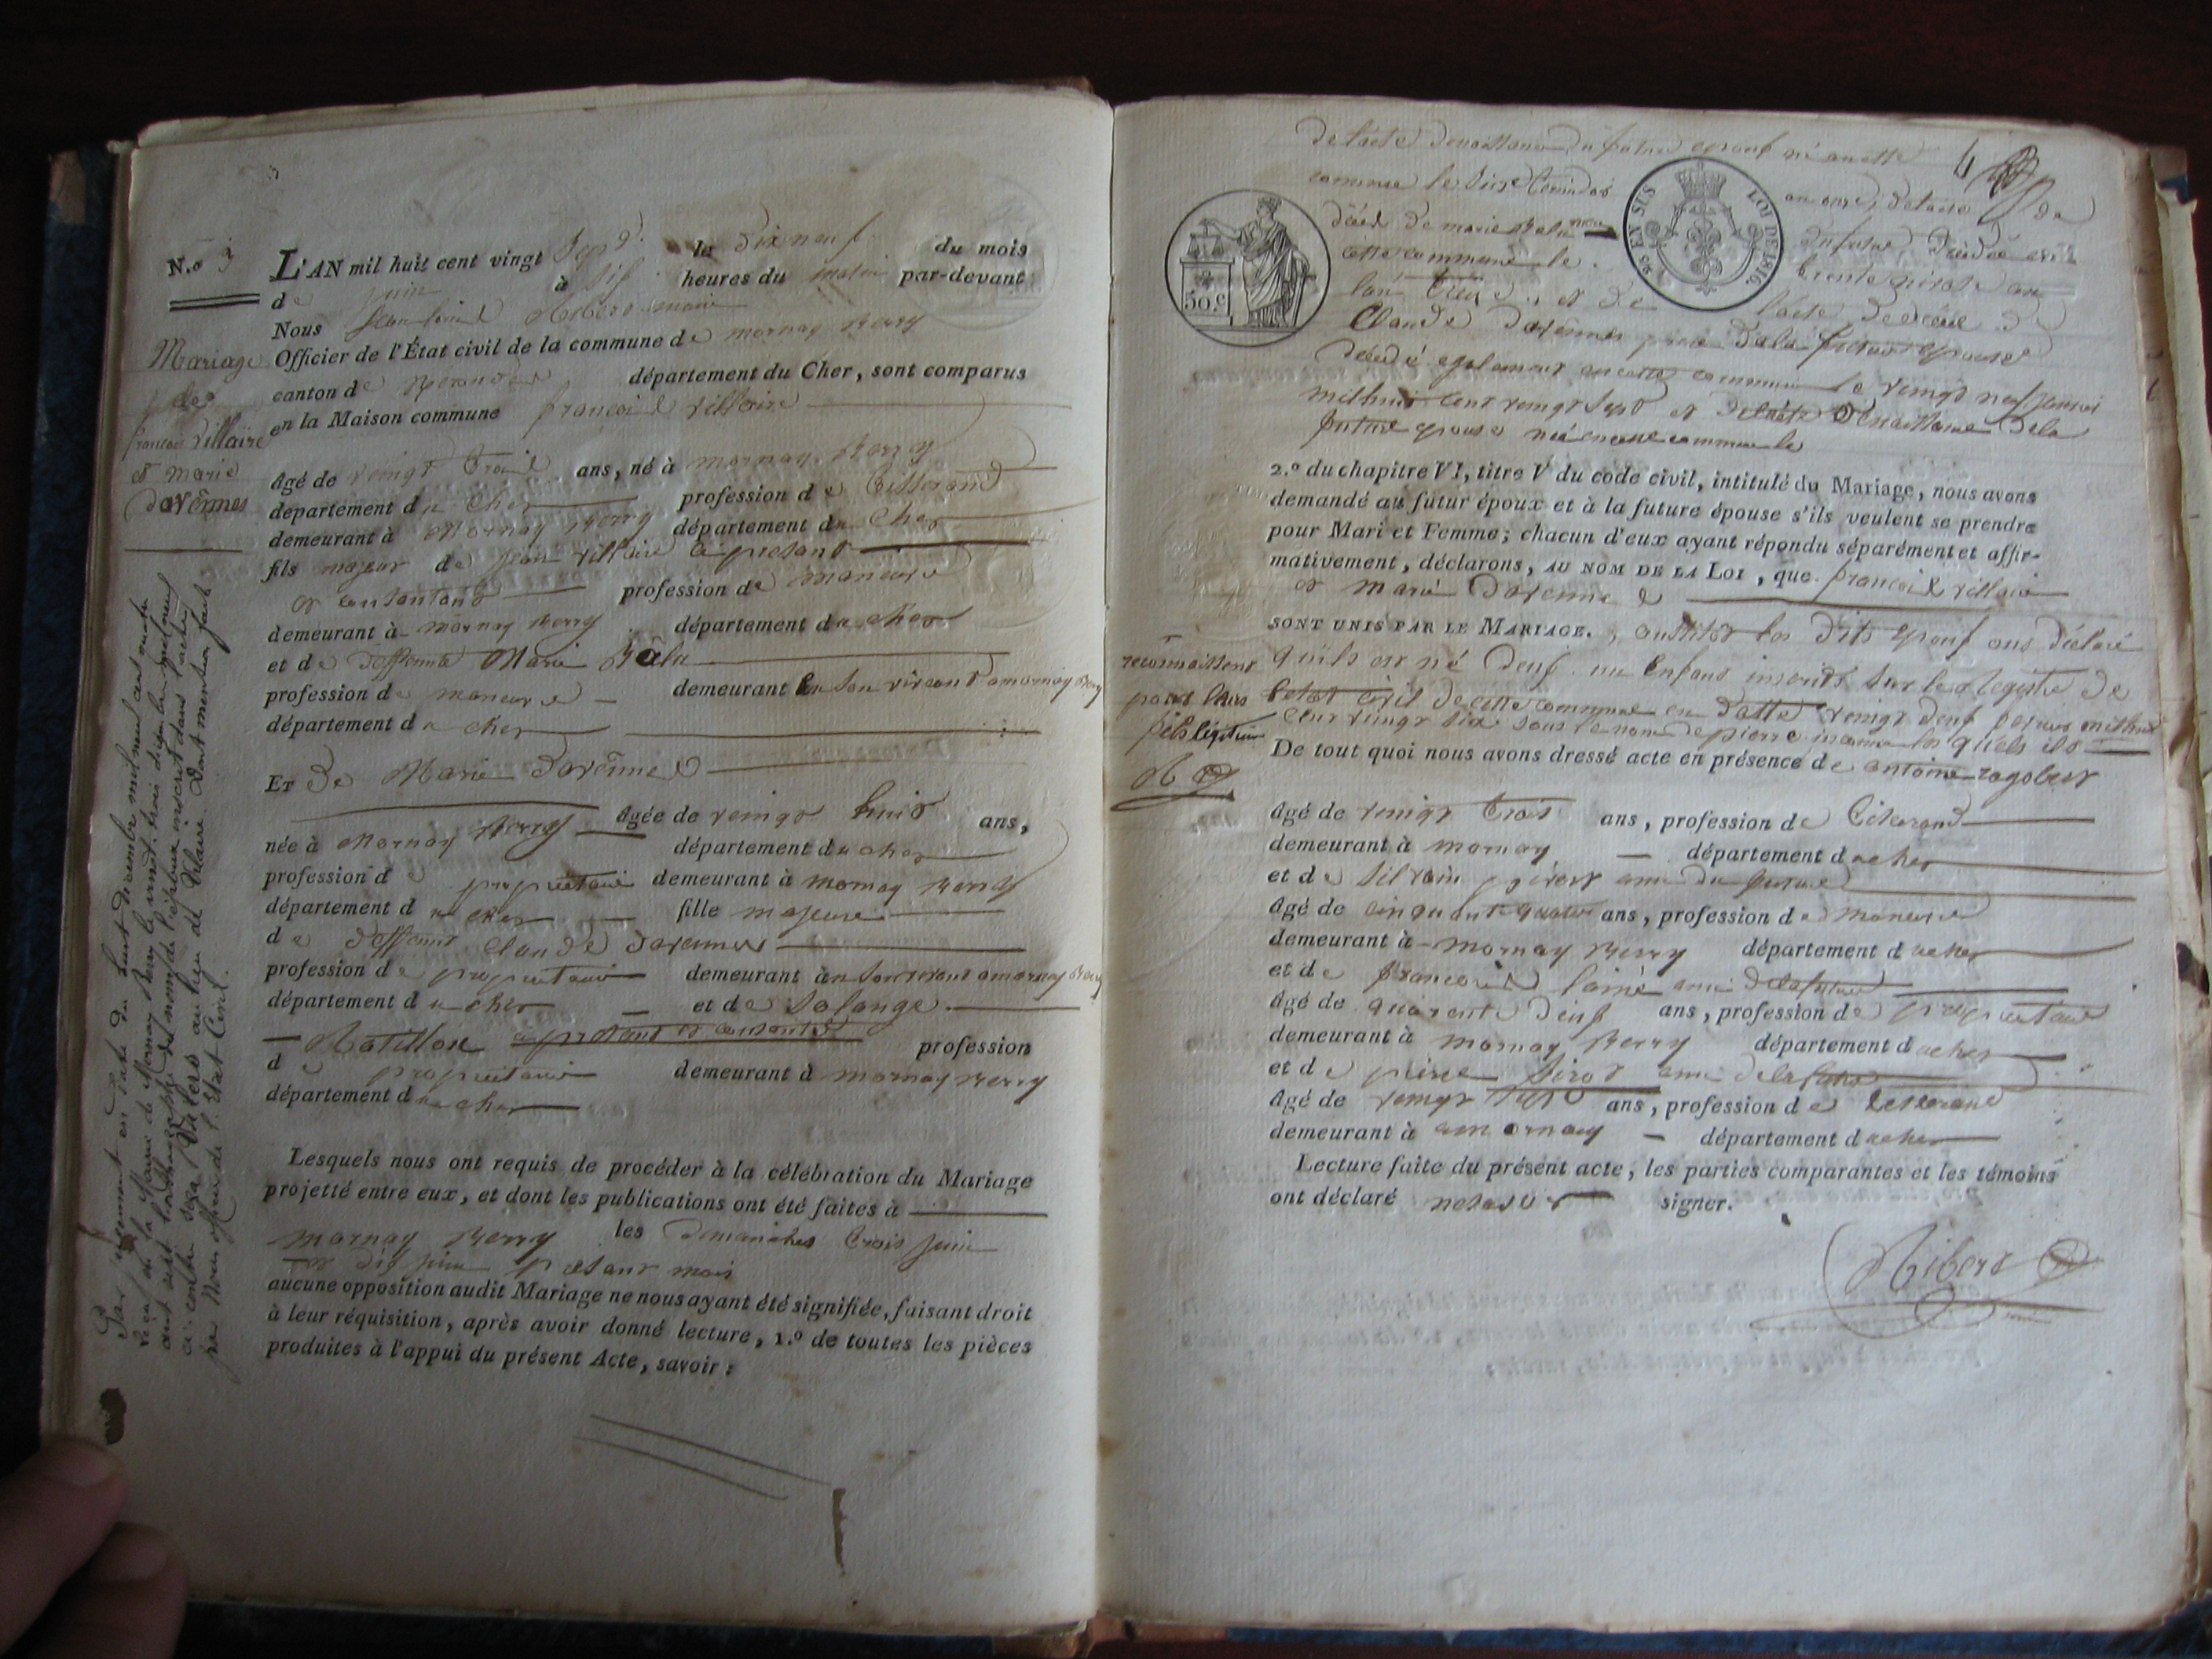 N.o 3
L'AN mil huit cent vingt Sept le dix neuf du mois
de juin à dix heures du matin par-devant
Nous maire
Officier de l'État civil de la commune de mornay Berry
canton de département du Cher, sont comparus
en la Maison commune francoi villaire
Mariage
de
francoi villaire
et marie
davênnes
Agé de veingt troi ans, né à mornay Berry
département du Cher profession de tisserand
demeurant à Mornay Berry département du Cher
fils majeur de jean villaire a present
et consantant profession de maneuvre
demeurant à mornay Berry département du cher
et de deffeunte Marie Balu
profession de maneuvre demeurant en son vivant a mornay Bery
département du cher
ET de Marie davênne
Agée de veingt huit ans,
née à Mornay Berry département du cher
profession de propriétaire demeurant à mornay Berry
département du cher fille majeure
de deffeunt claude davennes
profession de propriétaire demeurant en son vivant a mornay Bery
département du cher et de Solange
Ratillon a présant et consantant profession
de propriétaire demeurant à mornay Berry
département du cher
Lesquels nous ont requis de procéder à la célébration du Mariage
projetté entre eux, et dont les publications ont été faites à
mornay Berry les dimanches trois juin
et dix juin présant mois
aucune opposition audit Mariage ne nous ayant été signifiée, faisant droit
à leur réquisition, après avoir donné lecture, 1.o de toutes les pièces
produites à l'appui du présent Acte, savoir :
Par jugement en date du huit décembre mil neuf cent
reçu en la Mairie de Mornay Berry le vingt trois
l'orthographe du nom de l'époux inscrit dans l'acte
ci-contre sera Valero au lieu de Vilaire. Dont mention faite
par Nous officier de l'Etat Civil.
4
de l'acte de naissance du futur epoux né en cette
commune le an onze, de l'acte de
décès de marie Balu du futur, décédée en
cette commune le trente
l'an treize et de l'acte de décès de
Claude davênnes père de la future epouse
décédé egalement en cette commune le veingt neuf janvier
mil huit cent veingt sept et de l'acte de naissance de la
future epouse née en cette commune le
50 c.
9s EN SUS
LOI DE 1816.
2.o du chapitre VI, titre V du code civil, intitulé du Mariage, nous avons
demandé au futur époux et à la future épouse s'ils veulent se prendre
pour Mari et Femme; chacun d'eux ayant répondu séparément et affir-
mativement, déclarons, AU NOM DE LA LOI, que francoi villaire
et marie davenne
SONT UNIS PAR LE MARIAGE., aussitot les dits epoux ons déclaré
qu'ils est né deux un enfans inscrits sur le registre de
letat civil de cette commune en datte veingt deux mil huit
cent veingt six sous le nom de pierre les quels ils
reconnaissent
pour leurs
fils légitime
De tout quoi nous avons dressé acte en présence de antoine ragobert
Agé de veingt trois ans, profession de
demeurant à mornay département du cher
et de Silvain ami du futur
Agé de cinquant quatre ans, profession de maneuvre
demeurant à mornay Berry département du cher
et de francoi lainé ami de la future
Agé de quarente deux ans, profession de propriétaire
demeurant à mornay Berry département du cher
et de pierre Sirot ami de la future
Agé de veingt sept ans, profession de
demeurant à mornay département du cher
Lecture faite du présent acte, les parties comparantes et les témoins
ont déclaré ne savoir signer.